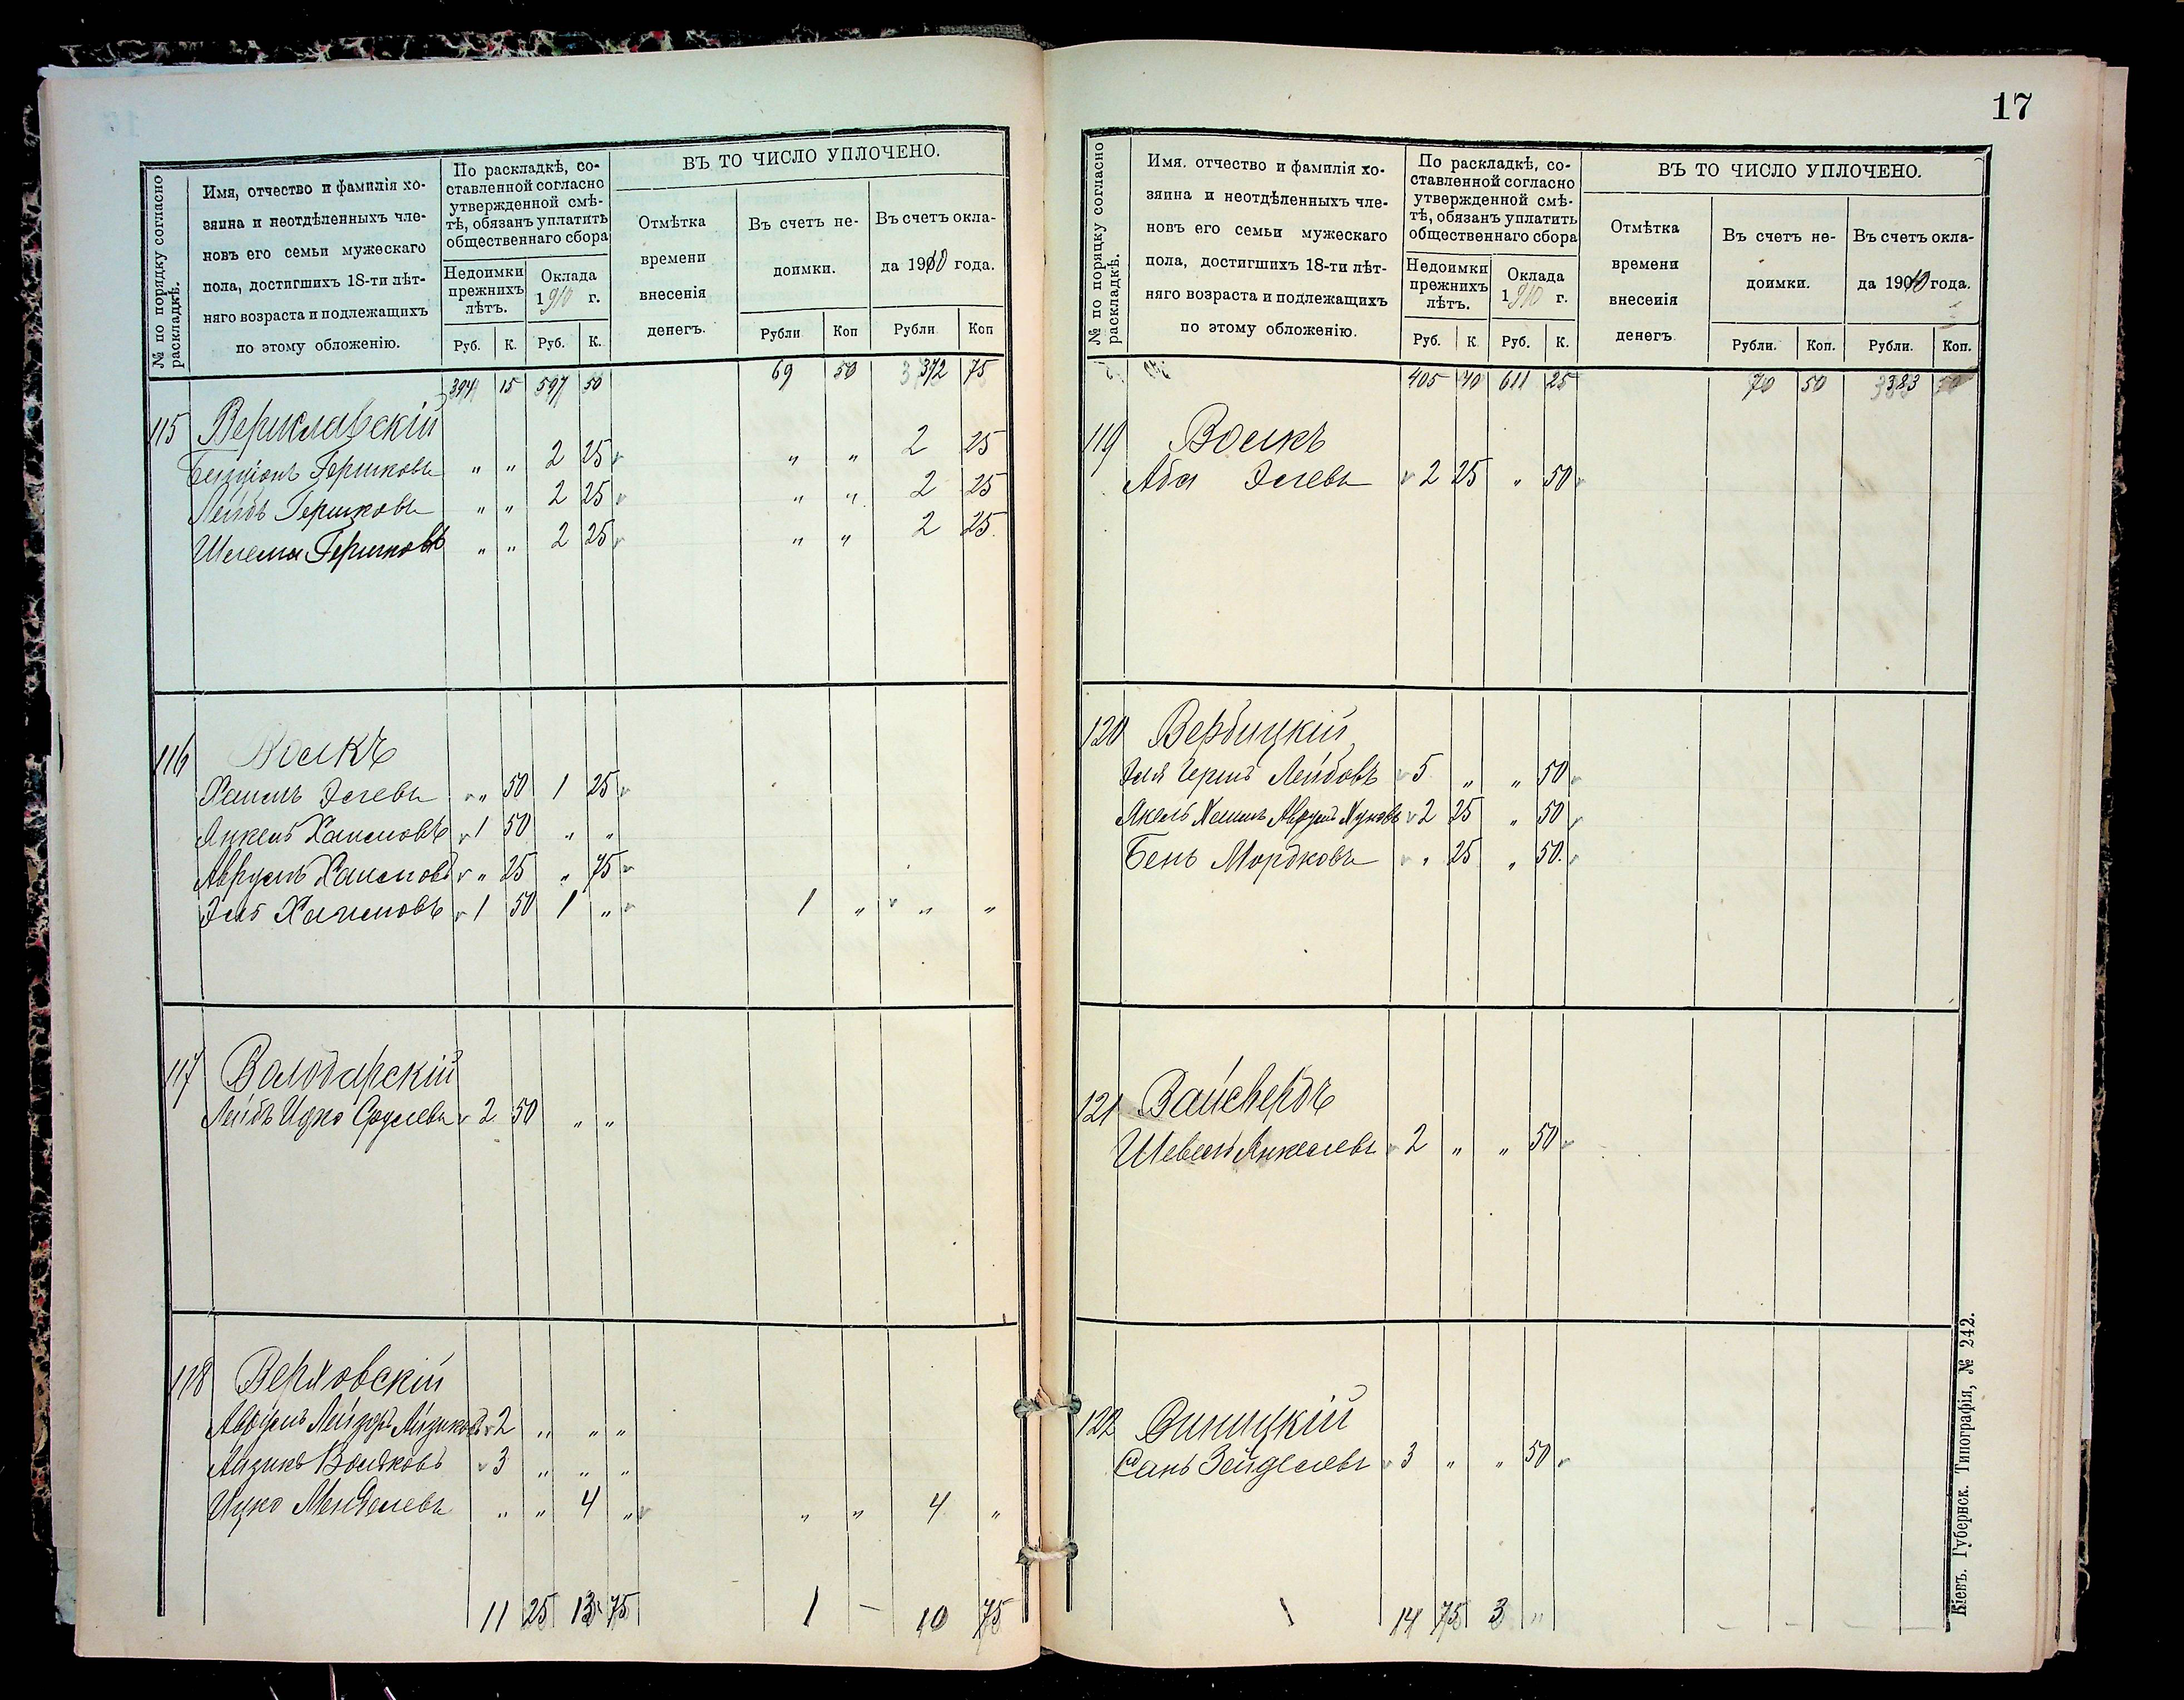 № по порядку согласно раскладкѣ.
Имя, отчество и фамилія хо-
зяина и неотдѣленныхъ чле-
новъ его семьи мужескаго
пола, достигшихъ 18-ти лѣт-
няго возраста и подлежащихъ
по этому обложенію.
По раскладкѣ, со-
ставленной согласно
утвержденной смѣ-
тѣ, обязанъ уплатить
общественнаго сбора
Недоимки прежнихъ лѣтъ.
Оклада 1910 г.
Руб. К. Руб. К.
ВЪ ТО ЧИСЛО УПЛОЧЕНО.
Отмѣтка
времени
внесенія
денегъ.
Въ счетъ не-
доимки.
Въ счетъ окла-
да 1910 года.
Рубли Коп Рубли Коп
394 15 597 50 69 50 372 75
115
Бенціонъ Гершковъ " " 2 25 " " 2 25
Лейбъ Гершковъ " " 2 25 " " 2 25
Шлема Гершковъ " " 2 25 " " 2 25
116 Волкъ
Хаимъ Элевъ " 50 1 25
Янкель Хаимовъ 1 50 " "
Аврумъ Хаимовъ " 25 " 75
Эля Хаимовъ 1 50 1 " 1 " " "
117 Володарскій
Лейбъ Ицко Срулевъ 2 50 " "
118 Верховскій
Аврумъ Лейзоръ Айзиковъ 2 " " "
Айзикъ Вольковъ 3 " " "
Ицко Менделевъ " " 4 " " " 4 "
11 25 13 75 1 — 10 75
17
№ по порядку согласно раскладкѣ.
Имя. отчество и фамилія хо-
зяина и неотдѣленныхъ чле-
новъ его семьи мужескаго
пола, достигшихъ 18-ти лѣт-
няго возраста и подлежащихъ
по этому обложенію.
По раскладкѣ, со-
ставленной согласно
утвержденной смѣ-
тѣ, обязанъ уплатить
общественнаго сбора
Недоимки прежнихъ лѣтъ.
Оклада 1910 г.
Руб. К Руб. К.
ВЪ ТО ЧИСЛО УПЛОЧЕНО.
Отмѣтка
времени
внесенія
денегъ
Въ счетъ не-
доимки.
Въ счетъ окла-
да 1910 года.
Рубли. Коп. Рубли. Коп.
405 40 611 25 70 50 383 50
119 Волкъ
Аба Элевъ 2 25 " 50
120 Вербицкій
Эля Гершъ Лейбовъ 5 " " 50
Аврумъ 2 25 " 50
Бень Мордковъ " 25 " 50
121 Вайсбердъ
Шевель Янкелевъ 2 " " 50
122
Санъ Зейделевъ 3 " " 50
14 75 3 "
Кіевъ. Губернск. Типографія, № 242.